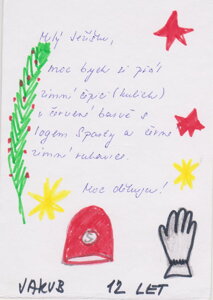 Milý Ježíšku,
moc bych si přál
zimní čepici (kulich)
v červené barvě s
logem Sparty a černé
zimní rukavice.
Moc děkuju!
JAKUB 12 LET